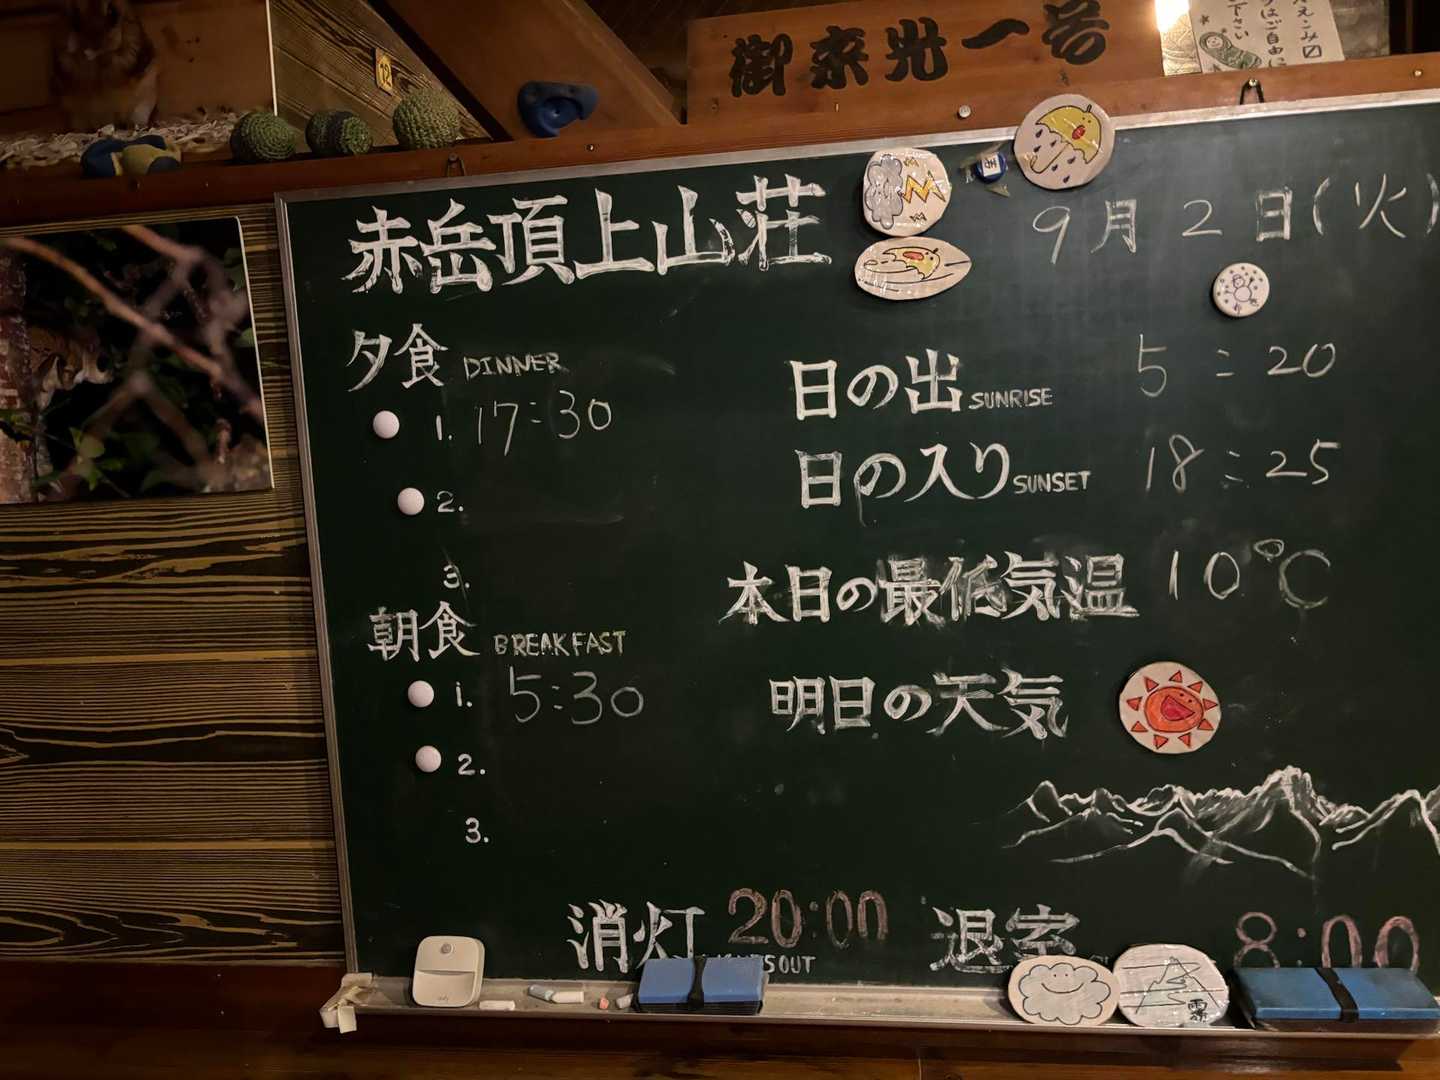 御来光一号
ご自由に
下さい
赤岳頂上山荘
9月2日(火)
夕食 DINNER
1. 17:30
2.
3.
朝食 BREAKFAST
1. 5:30
2.
3.
日の出 SUNRISE 5:20
日の入り SUNSET 18:25
本日の最低気温 10℃
明日の天気
消灯 20:00
OUT
退室 8:00
霧
12